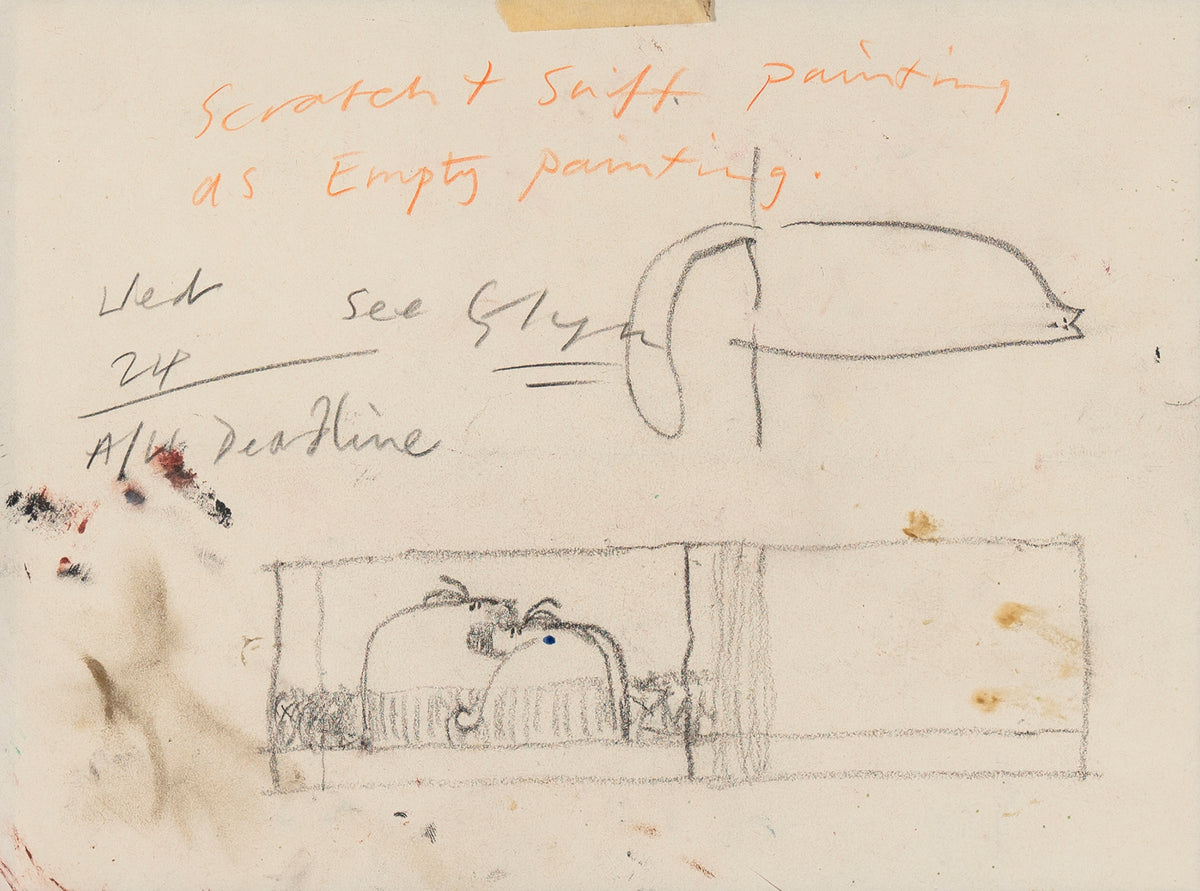 Scratch + Sniff painting
as Empty painting.
Wed see Glyn
24
A/W Deadline